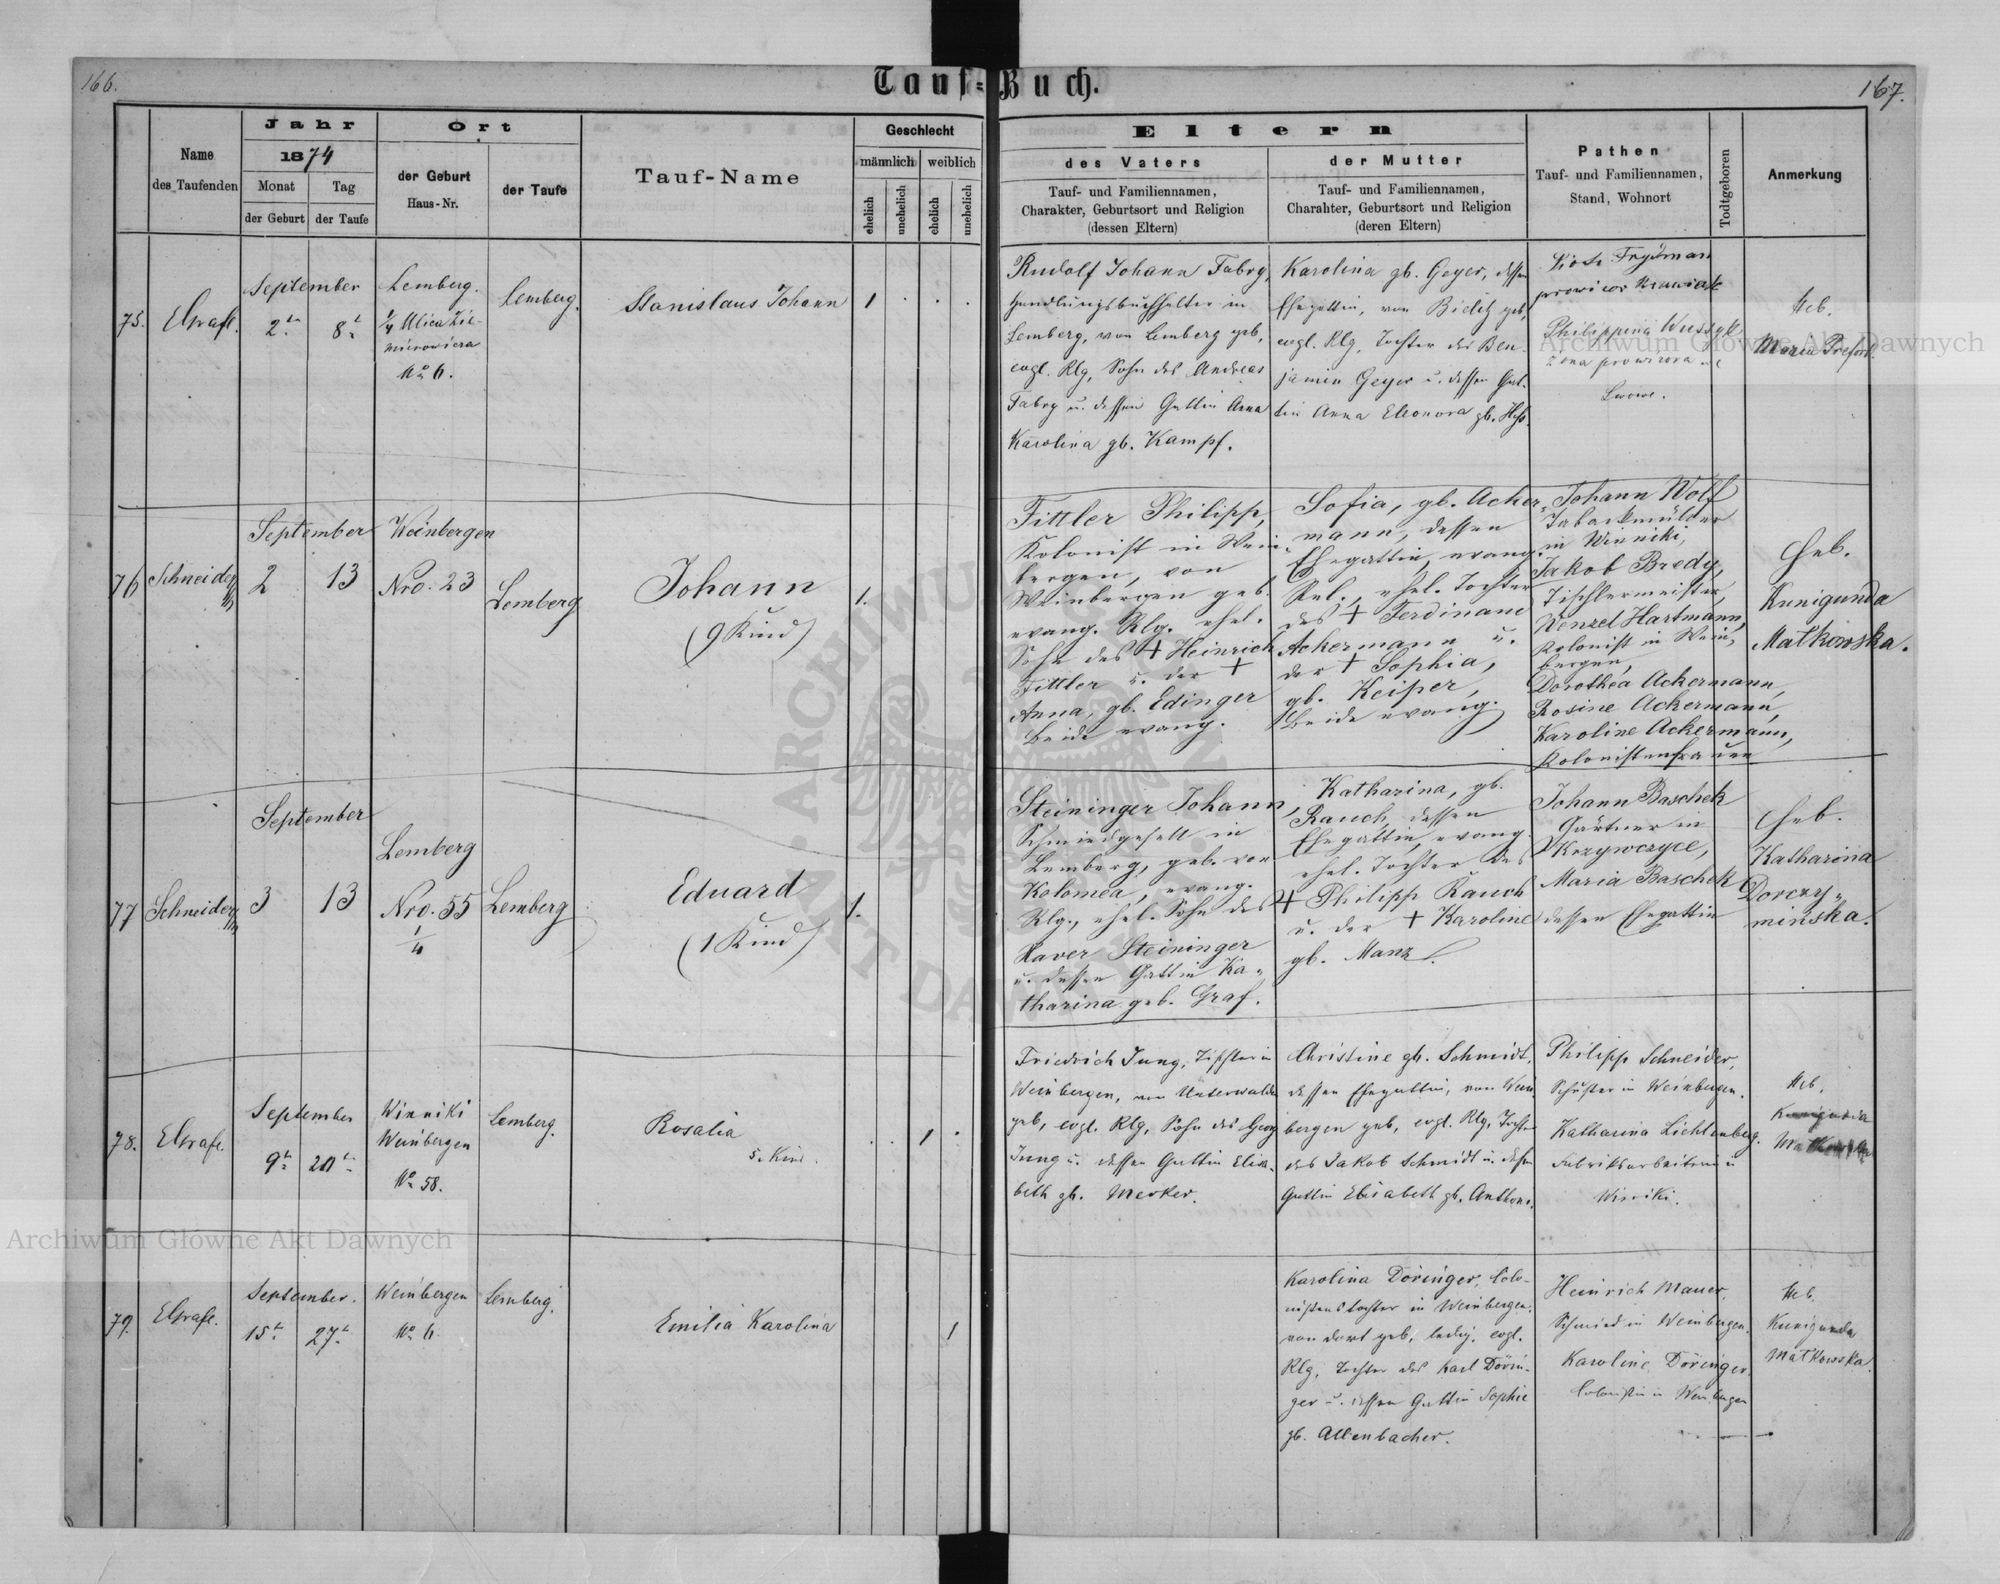 166.
Tauf-Buch.
167.
Name
des Taufenden
Jahr
1874
Monat
Tag
der Geburt
der Taufe
Ort
der Geburt
Haus-Nr.
der Taufe
Tauf-Name
Geschlecht
männlich
weiblich
ehelich
unehelich
ehelich
unehelich
Eltern
des Vaters
Tauf- und Familiennamen,
Charakter, Geburtsort und Religion
(dessen Eltern)
der Mutter
Tauf- und Familiennamen,
Charahter, Geburtsort und Religion
(deren Eltern)
Pathen
Tauf- und Familiennamen,
Stand, Wohnort
Todtgeboren
Anmerkung
75.
September
2
8
Lemberg.
No 6.
Lemberg.
Stanislaus Johann
1
Rudolf Johann Fabry,
Handlungsbuchhalter in
Lemberg, von Lemberg geb,
evgl. Rlg, Sohn des Andreas
Fabry u. dessen Gattin Anna
Karolina gb. Kampf.
Karolina gb. Geyer, dessen
Ehegattin, von Bielitz geb,
evgl. Rlg, Tochter des Ben-
jamin Geyer u. dessen Gat-
tin Anna Eleonora gb.
Frydman
Philippina
żona prowizora
Lwowe.
Heb.
Maria
76
Schneider
September
2
13
Weinbergen
Nro. 23
Lemberg
Johann
(9 Kind)
1.
Fittler Philipp,
Kolonist in Wein-
bergen, von
Weinbergen geb.
evang. Rlg. ehel.
Sohn des + Heinrich
Fittler u. der +
Anna, gb. Edinger
beide evang.
Sofia, gb. Acker-
mann, dessen
Ehegattin, evang.
Rel., ehel. Tochter
des + Ferdinand
Ackermann u.
der + Sophia,
gb. Keiper,
beide evang.
Johann Wolf
in Winniki,
Jakob Bredy,
Tischlermeister,
Wenzel Hartmann,
Kolonist in Wein-
bergen,
Dorothea Ackermann,
Rosine Ackermann,
Karoline Ackermann,
Kolonistenfrauen
Heb.
Kunigunda
Matkowska.
77
Schneider
September
3
13
Lemberg
Nro. 55
1/4
Lemberg
Eduard
(1 Kind)
1.
Steininger Johann,
Schmiedgesell in
Lemberg, geb. von
Kolomea, evang.
Rlg., ehel. Sohn des
Xaver Steininger
u. dessen Gattin Ka-
tharina geb. Graf.
Katharina, gb.
Rauch, dessen
Ehegattin, evang.
ehel. Tochter des
+ Philipp Rauch
u. der + Karoline
gb. Manz.
Johann Baschek
Gärtner in
Krzywczyce,
Maria Baschek
dessen Ehegattin
Heb.
Katharina
Dorczy-
mińska.
78.
September
9
20
Winniki
Weinbergen
No 58.
Lemberg.
Rosalia
5. Kind.
1
Friedrich Jung, Tischler in
Weinbergen, von Unterwalden
geb, evgl. Rlg, Sohn des Georg
Jung u. dessen Gattin Elisa-
beth gb. Merker.
Christine gb. Schmidt,
dessen Ehegattin, von Wein-
bergen geb, evgl. Rlg, Tochter
des Jakob Schmidt u. dessen
Gattin Elisabeth gb. Anthoni.
Philipp Schneider,
Schuster in Weinbergen.
Katharina Lichtenberg.
Fabriksarbeiterin
Winniki.
Heb.
Kunigunda
Matkowska
79.
September.
15
27
Weinbergen
No 6.
Lemberg.
Emilia Karolina
1
Karolina Döringer, Colo-
nistenstochter in Weinbergen,
von dort geb, ledig, evgl.
Rlg, Tochter des Karl Dörin-
ger u. dessen Gattin Sophie
gb. Allenbacher.
Heinrich Mauer,
Schmied in Weinbergen.
Karoline Döringer,
Colonistin in Weinbergen
Heb.
Kunigunda
Matkowska.
Archiwum Główne Akt Dawnych
Archiwum Główne Akt Dawnych